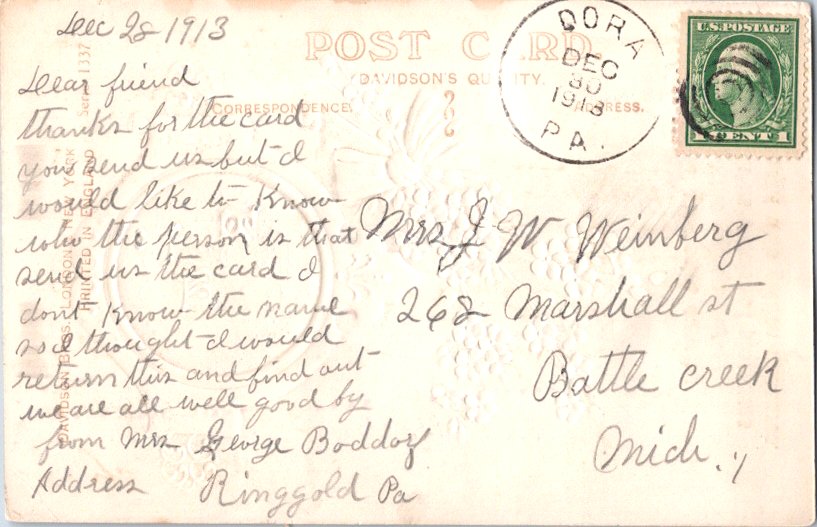 Dec 28 1913
POST CARD.
DAVIDSON'S QUALITY.
CORRESPONDENCE.
ADDRESS.
Dear friend
thanks for the card
you send us but I
would like to know
who the person is that
send us the card I
dont know the name
so I thought I would
return this and find out
we are all well good by
from Mrs George
Address Ringgold Pa
DORA
DEC
30
1913
PA.
U.S. POSTAGE
1 CENT 1
Mrs J W Weinberg
268 Marshall st
Battle creek
Mich.,
DAVIDSON BROS. LONDON & NEW YORK
PRINTED IN ENGLAND
1337